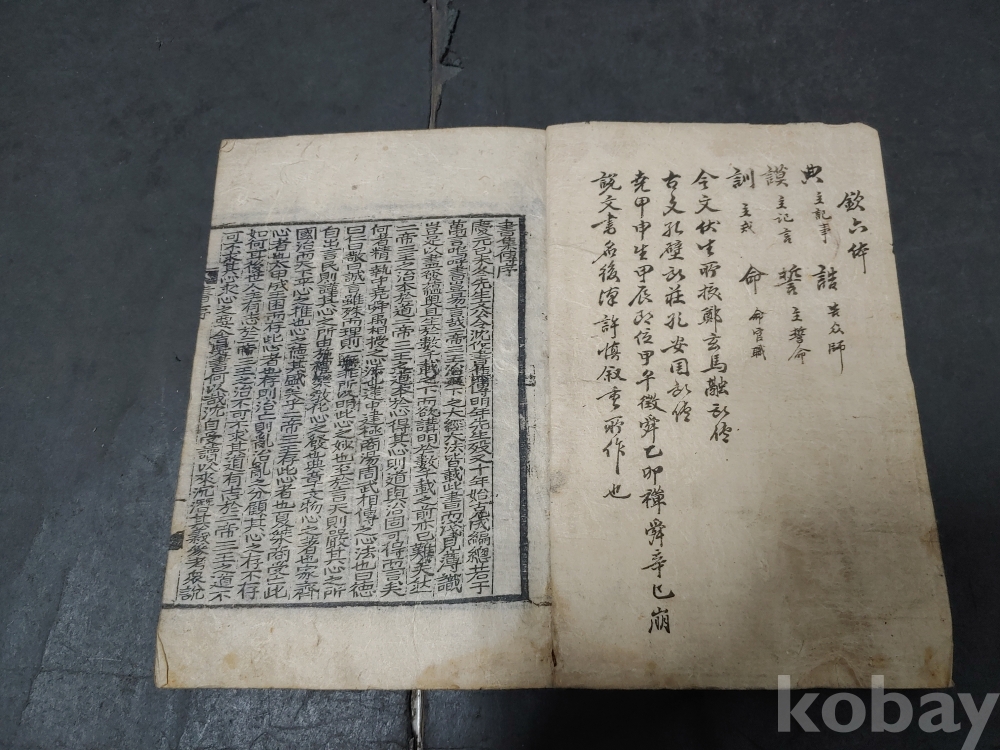 欽六体
典 主記事 誥 告众師
謨 主記言 誓 主誓命
訓 主戒 命 命官職
今文伏生所振鄭玄馬融所传
古文孔壁所莊孔安国所传
堯甲申生甲辰即位甲午徵舜乙卯禅舜辛巳崩
說文書名後漢許慎叙重所作也
書集傳序
慶元己未冬先生文公令沈作書集傳明年先生歿又十年始克成編總若干
萬言嗚呼書豈易言哉二帝三王治天下之大經大法皆載此書而淺見薄識
豈足以盡發蘊奧且生於數千載之下而欲講明於數千載之前亦已難矣然
二帝三王之治本於道二帝三王之道本於心得其心則道與治固可得而言矣
何者精一執中堯舜禹相授之心法也建中建極商湯周武相傳之心法也曰德
曰仁曰敬曰誠言雖殊而理則一無非所以明此心之妙也至於言天則嚴其心之所
自出言民則謹其心之所由施禮樂教化心之發也典章文物心之著也家齊
國治而天下平心之推也心之德其盛矣乎二帝三王存此心者也夏桀商受亡此
心者也太甲成王困而存此心者也存則治亡則亂治亂之分顧其心之存不存
如何耳後世人主有志於二帝三王之治不可不求其道有志於二帝三王之道不
可不求其心求心之要舍是書何以哉沈自受讀以來沈潛其義參考衆說
kobay